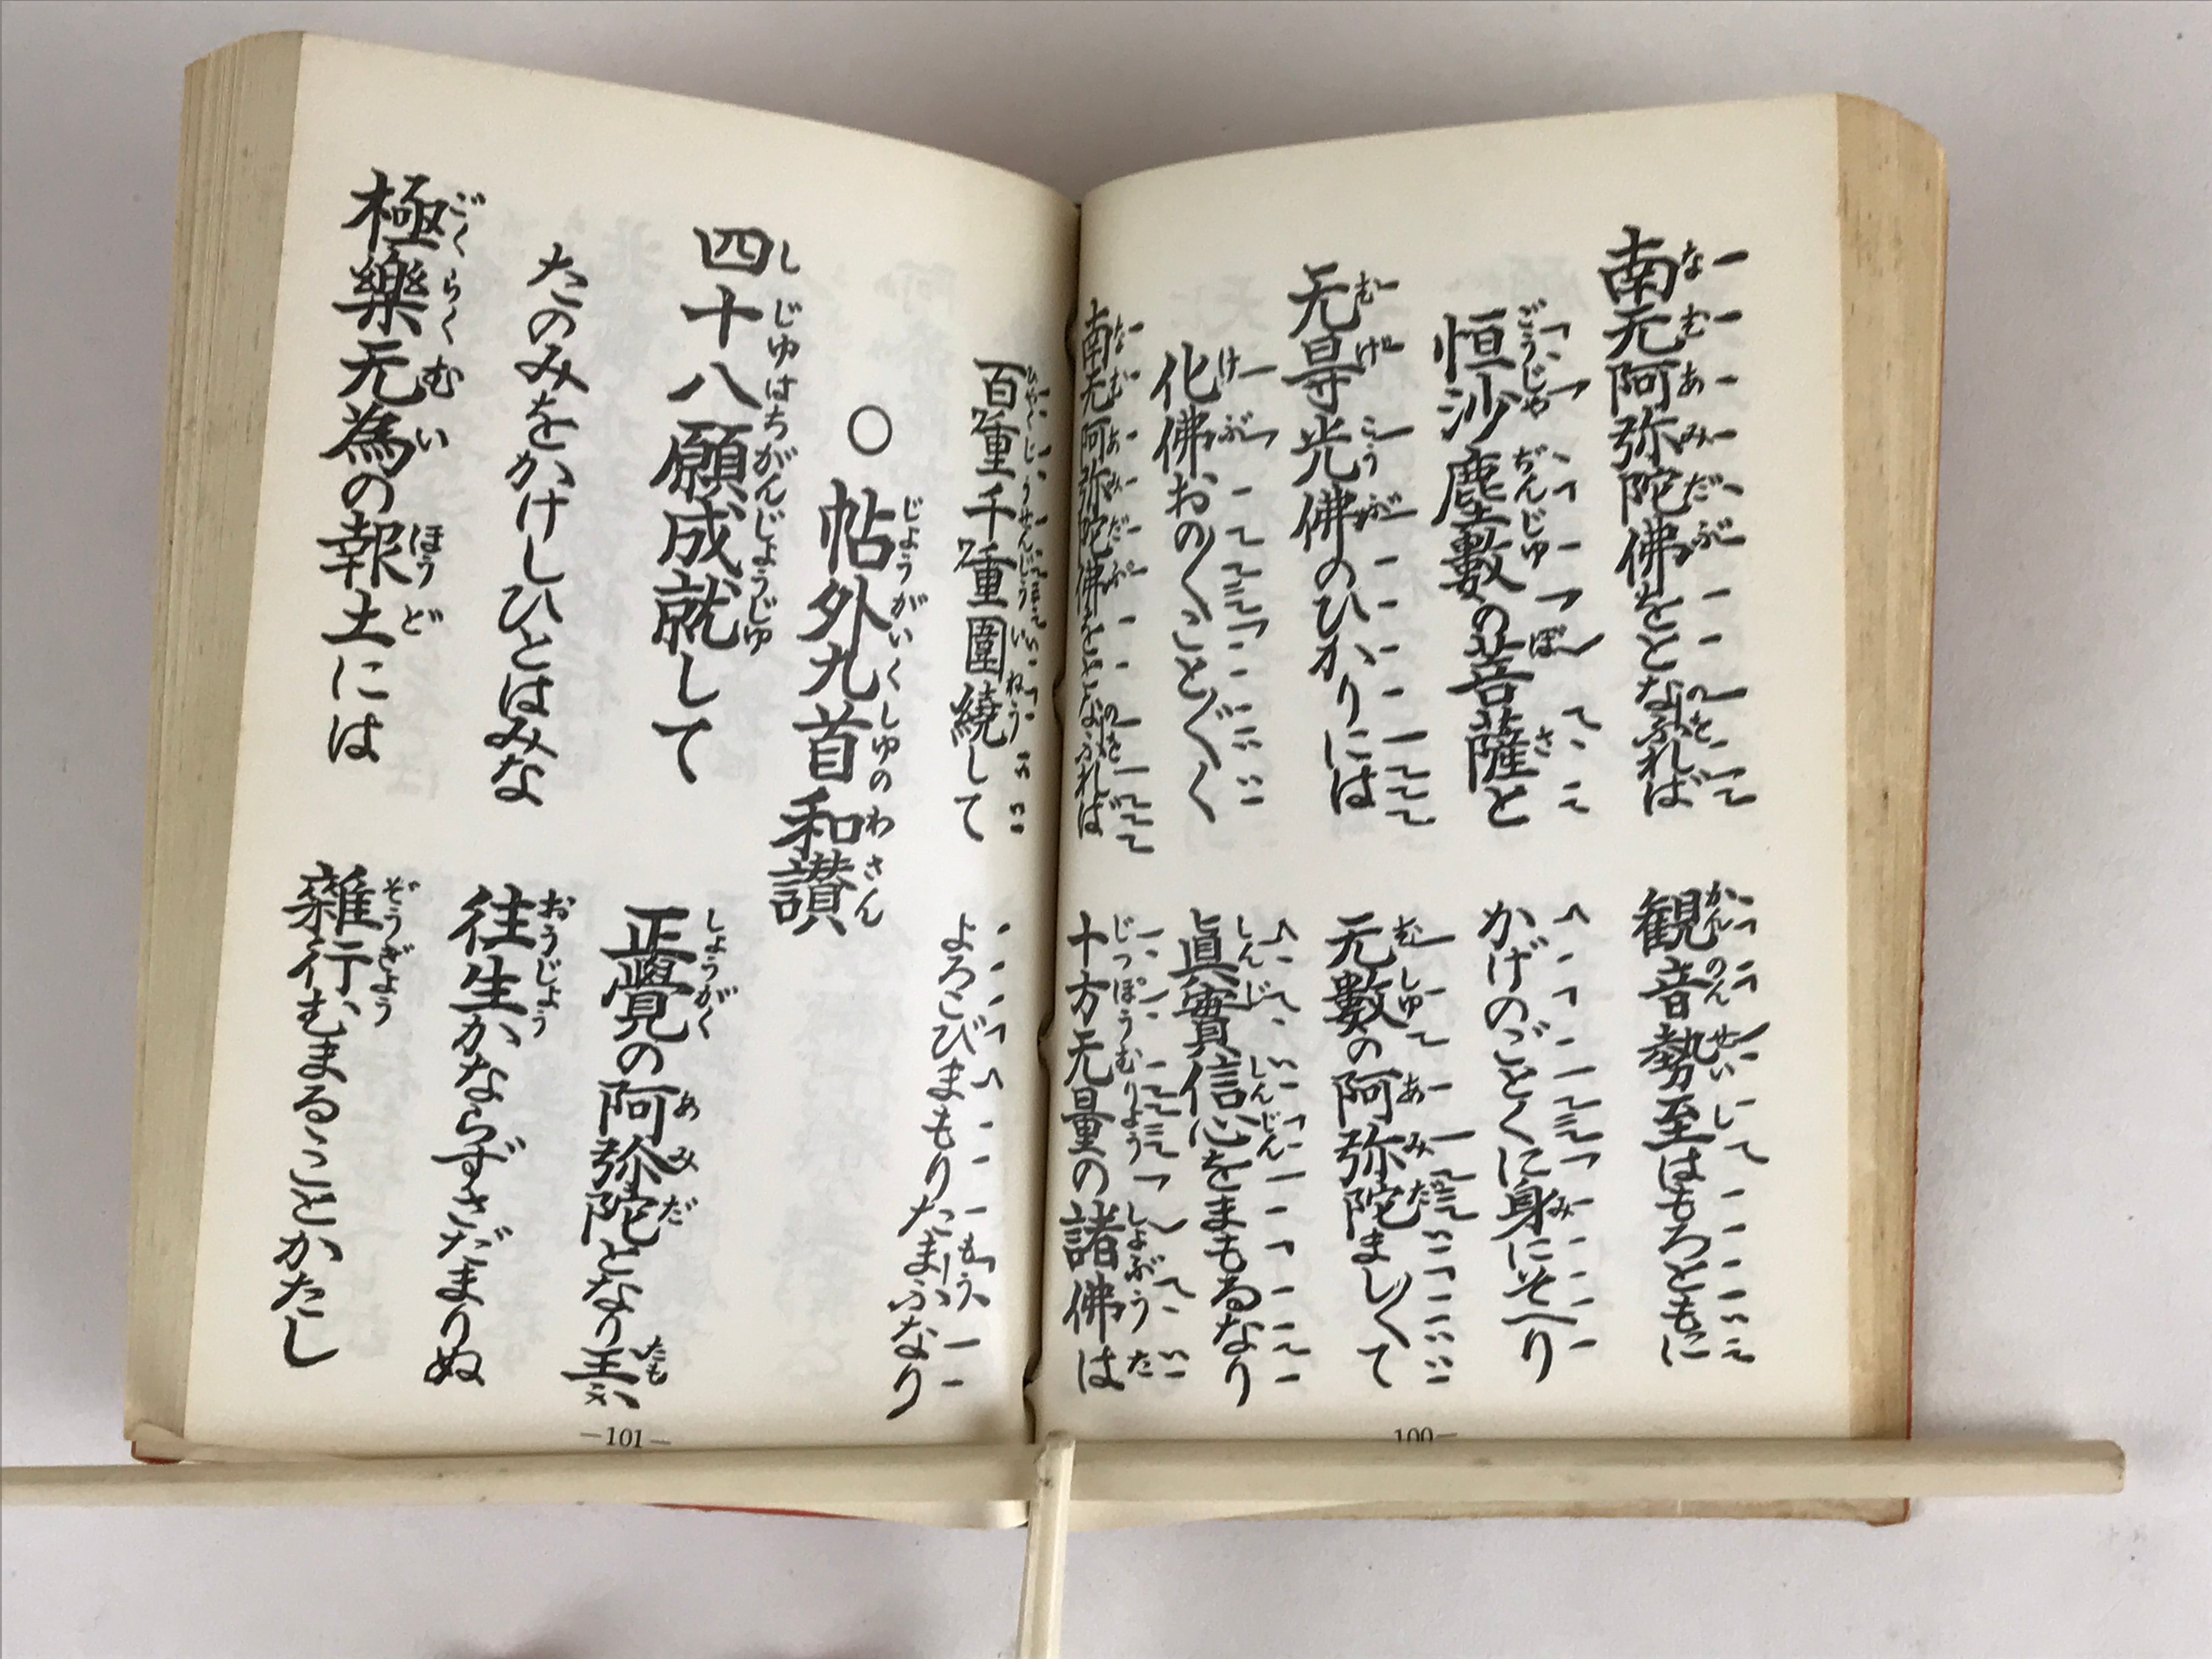 南无阿弥陀佛をとなふれば 観音勢至はもろともに
恒沙塵數の菩薩と かげのごとくに身にそへり
无㝵光佛のひかりには 无數の阿弥陀まし〱て
化佛おの〱こと〲く 眞實信心をまもるなり
南无阿弥陀佛をとなふれば 十方无量の諸佛は
—100—
百重千重圍繞して よろこびまもりたまふなり
○ 帖外九首和讃
四十八願成就して 正覺の阿弥陀となり玉ふ
たのみをかけしひとはみな 往生かならずさだまりぬ
極樂无為の報土には 雜行むまるることかたし
—101—